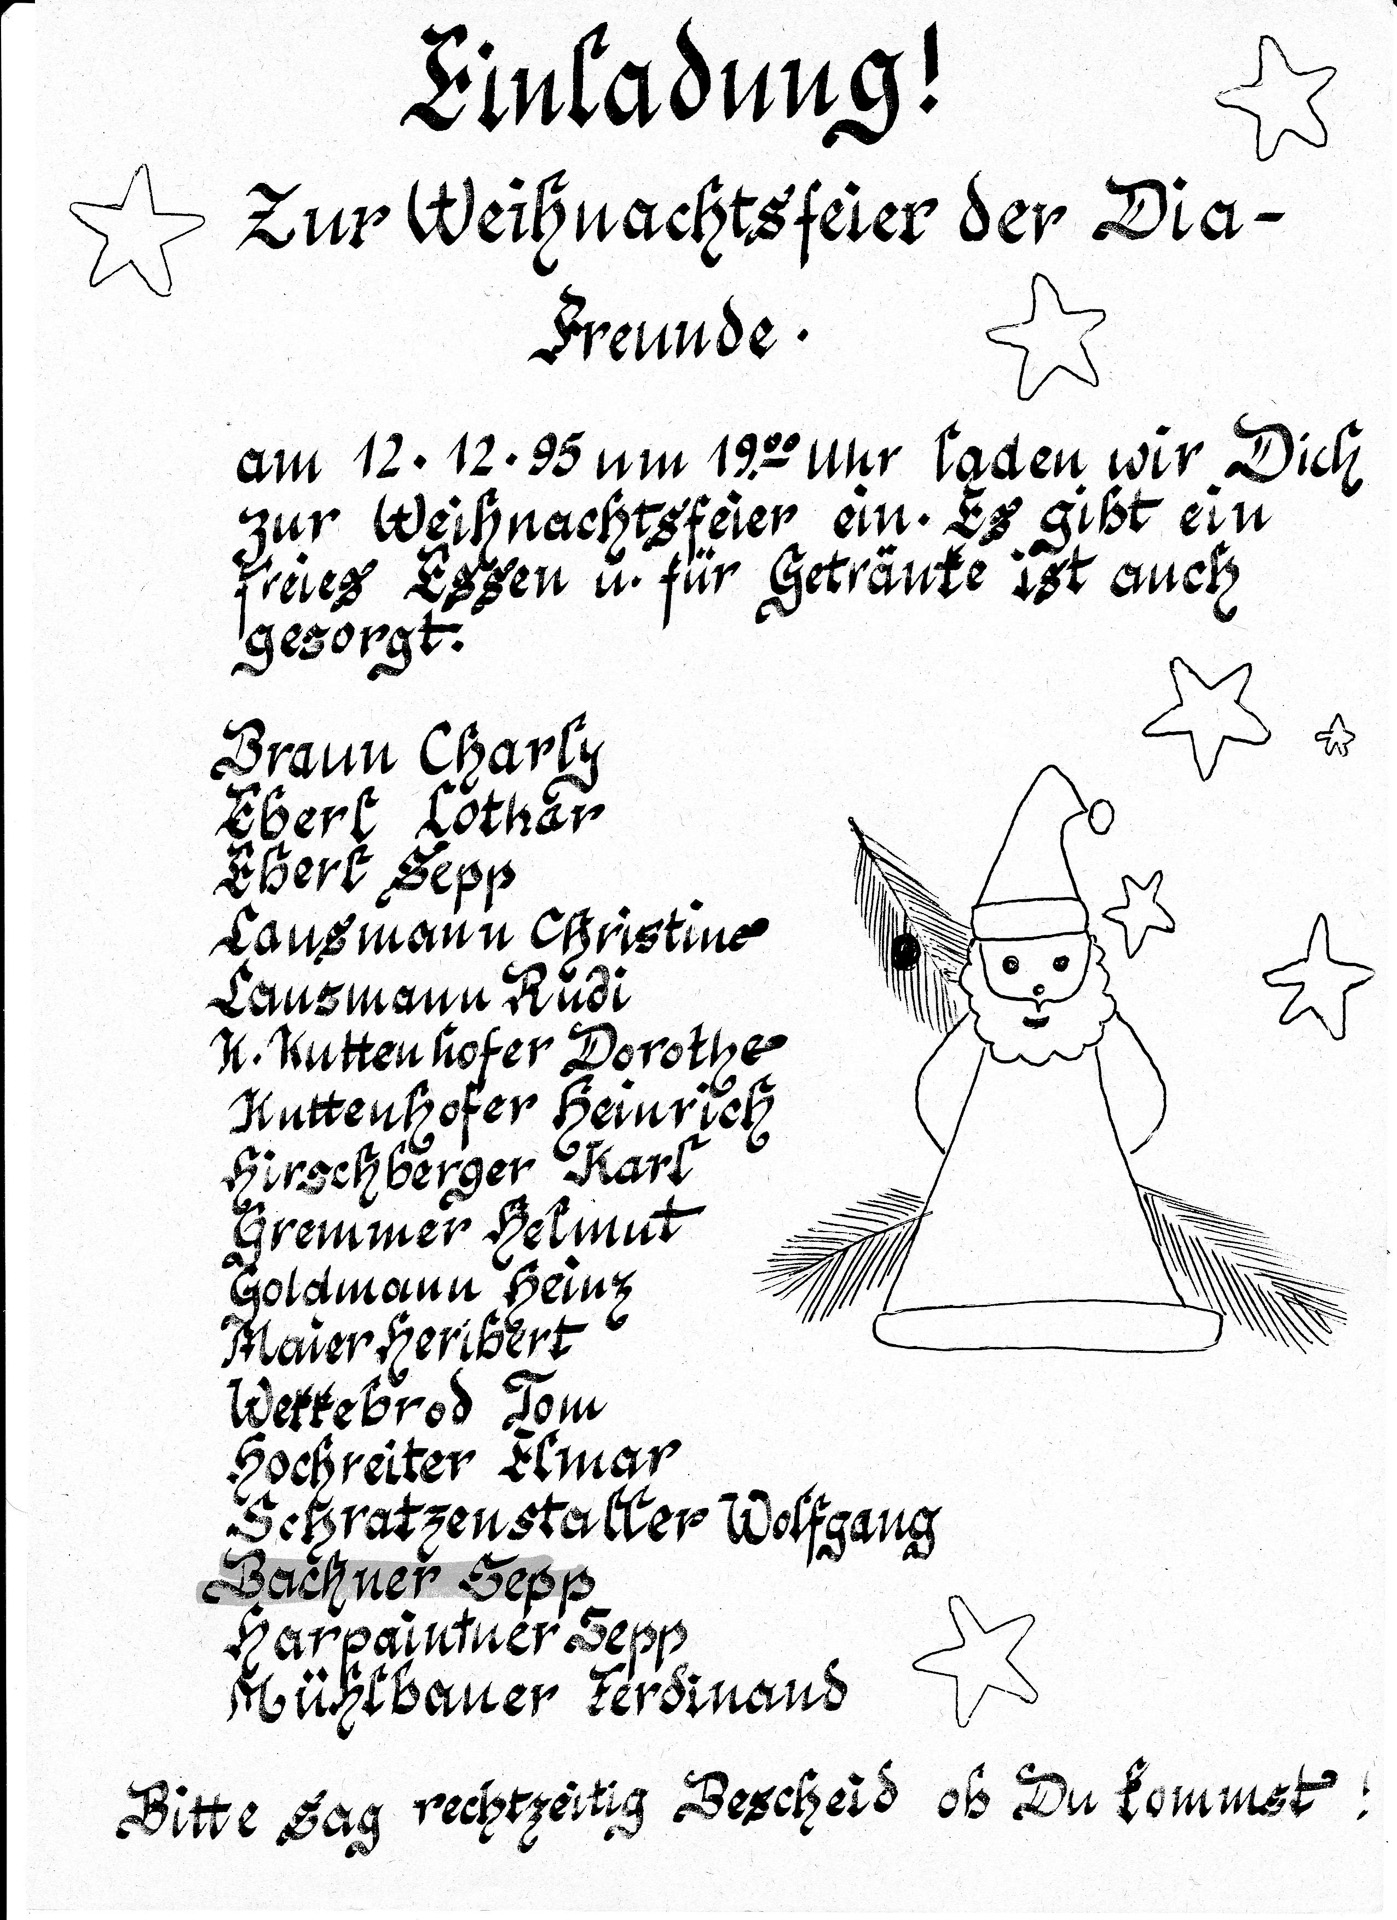 Einladung!
Zur Weihnachtsfeier der Dia-
Freunde.
am 12. 12. 95 um 19.00 Uhr laden wir Dich
zur Weihnachtsfeier ein. Es gibt ein
freies Essen u. für Getränke ist auch
gesorgt.
Braun Charly
Eberl Lothar
Eberl Sepp
Lausmann Christine
Lausmann Rudi
K. Kuttenhofer Dorothe
Kuttenhofer Heinrich
Hirschberger Karl
Gremmer Helmut
Goldmann Heinz
Maier Heribert
Wekkebrod Tom
Hochreiter Elmar
Schratzenstaller Wolfgang
Bachner Sepp
Harpaintner Sepp
Mühlbauer Ferdinand
Bitte sag rechtzeitig Bescheid ob Du kommst!